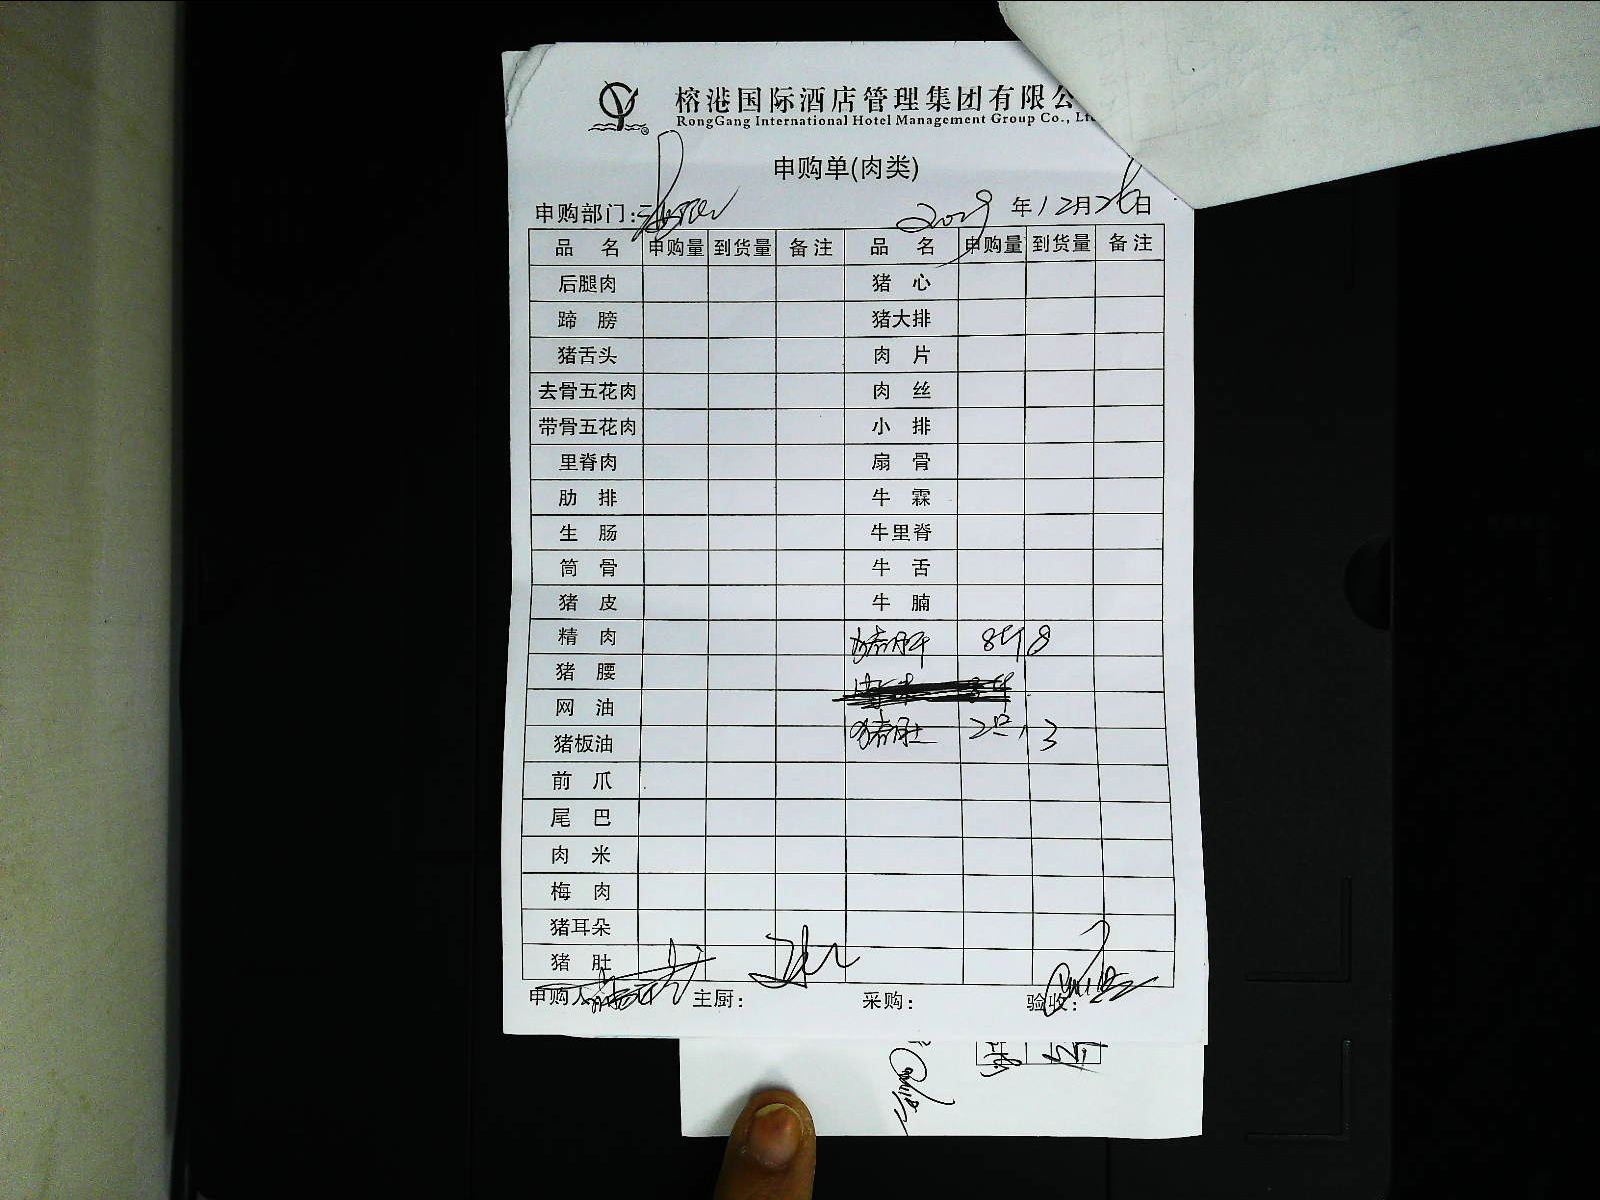 榕港国际酒店管理集团有限公
RongGang International Hotel Management Group Co., Lt
申购单(肉类)
申购部门: 年12月26日
品 名 申购量 到货量 备注 品 名 申购量 到货量 备注
后腿肉 猪 心
蹄 膀 猪大排
猪舌头 肉 片
去骨五花肉 肉 丝
带骨五花肉 小 排
里脊肉 扇 骨
肋 排 牛 霖
生 肠 牛里脊
筒 骨 牛 舌
猪 皮 牛 腩
精 肉 猪肝 8斤 8
猪 腰
网 油
猪板油 猪肚 2只 3
前 爪
尾 巴
肉 米
梅 肉
猪耳朵
猪 肚
申购人 主厨: 采购: 验收: